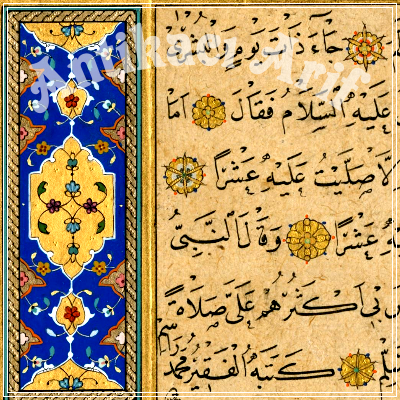 Antikacı Arif
جَاءَ ذَاتَ يَوْمٍ وَالْبُشْرٰى
عَلَيْهِ السَّلَامُ فَقَالَ اَمَا
اِلَّا صَلَّيْتُ عَلَيْهِ عَشْرًا
عَشْرًا وَقَالَ النَّبِيُّ
بِي اَكْثَرُهُمْ عَلَيَّ صَلَاةً
كَتَبَهُ الْفَقِيرُ مُحَمَّد